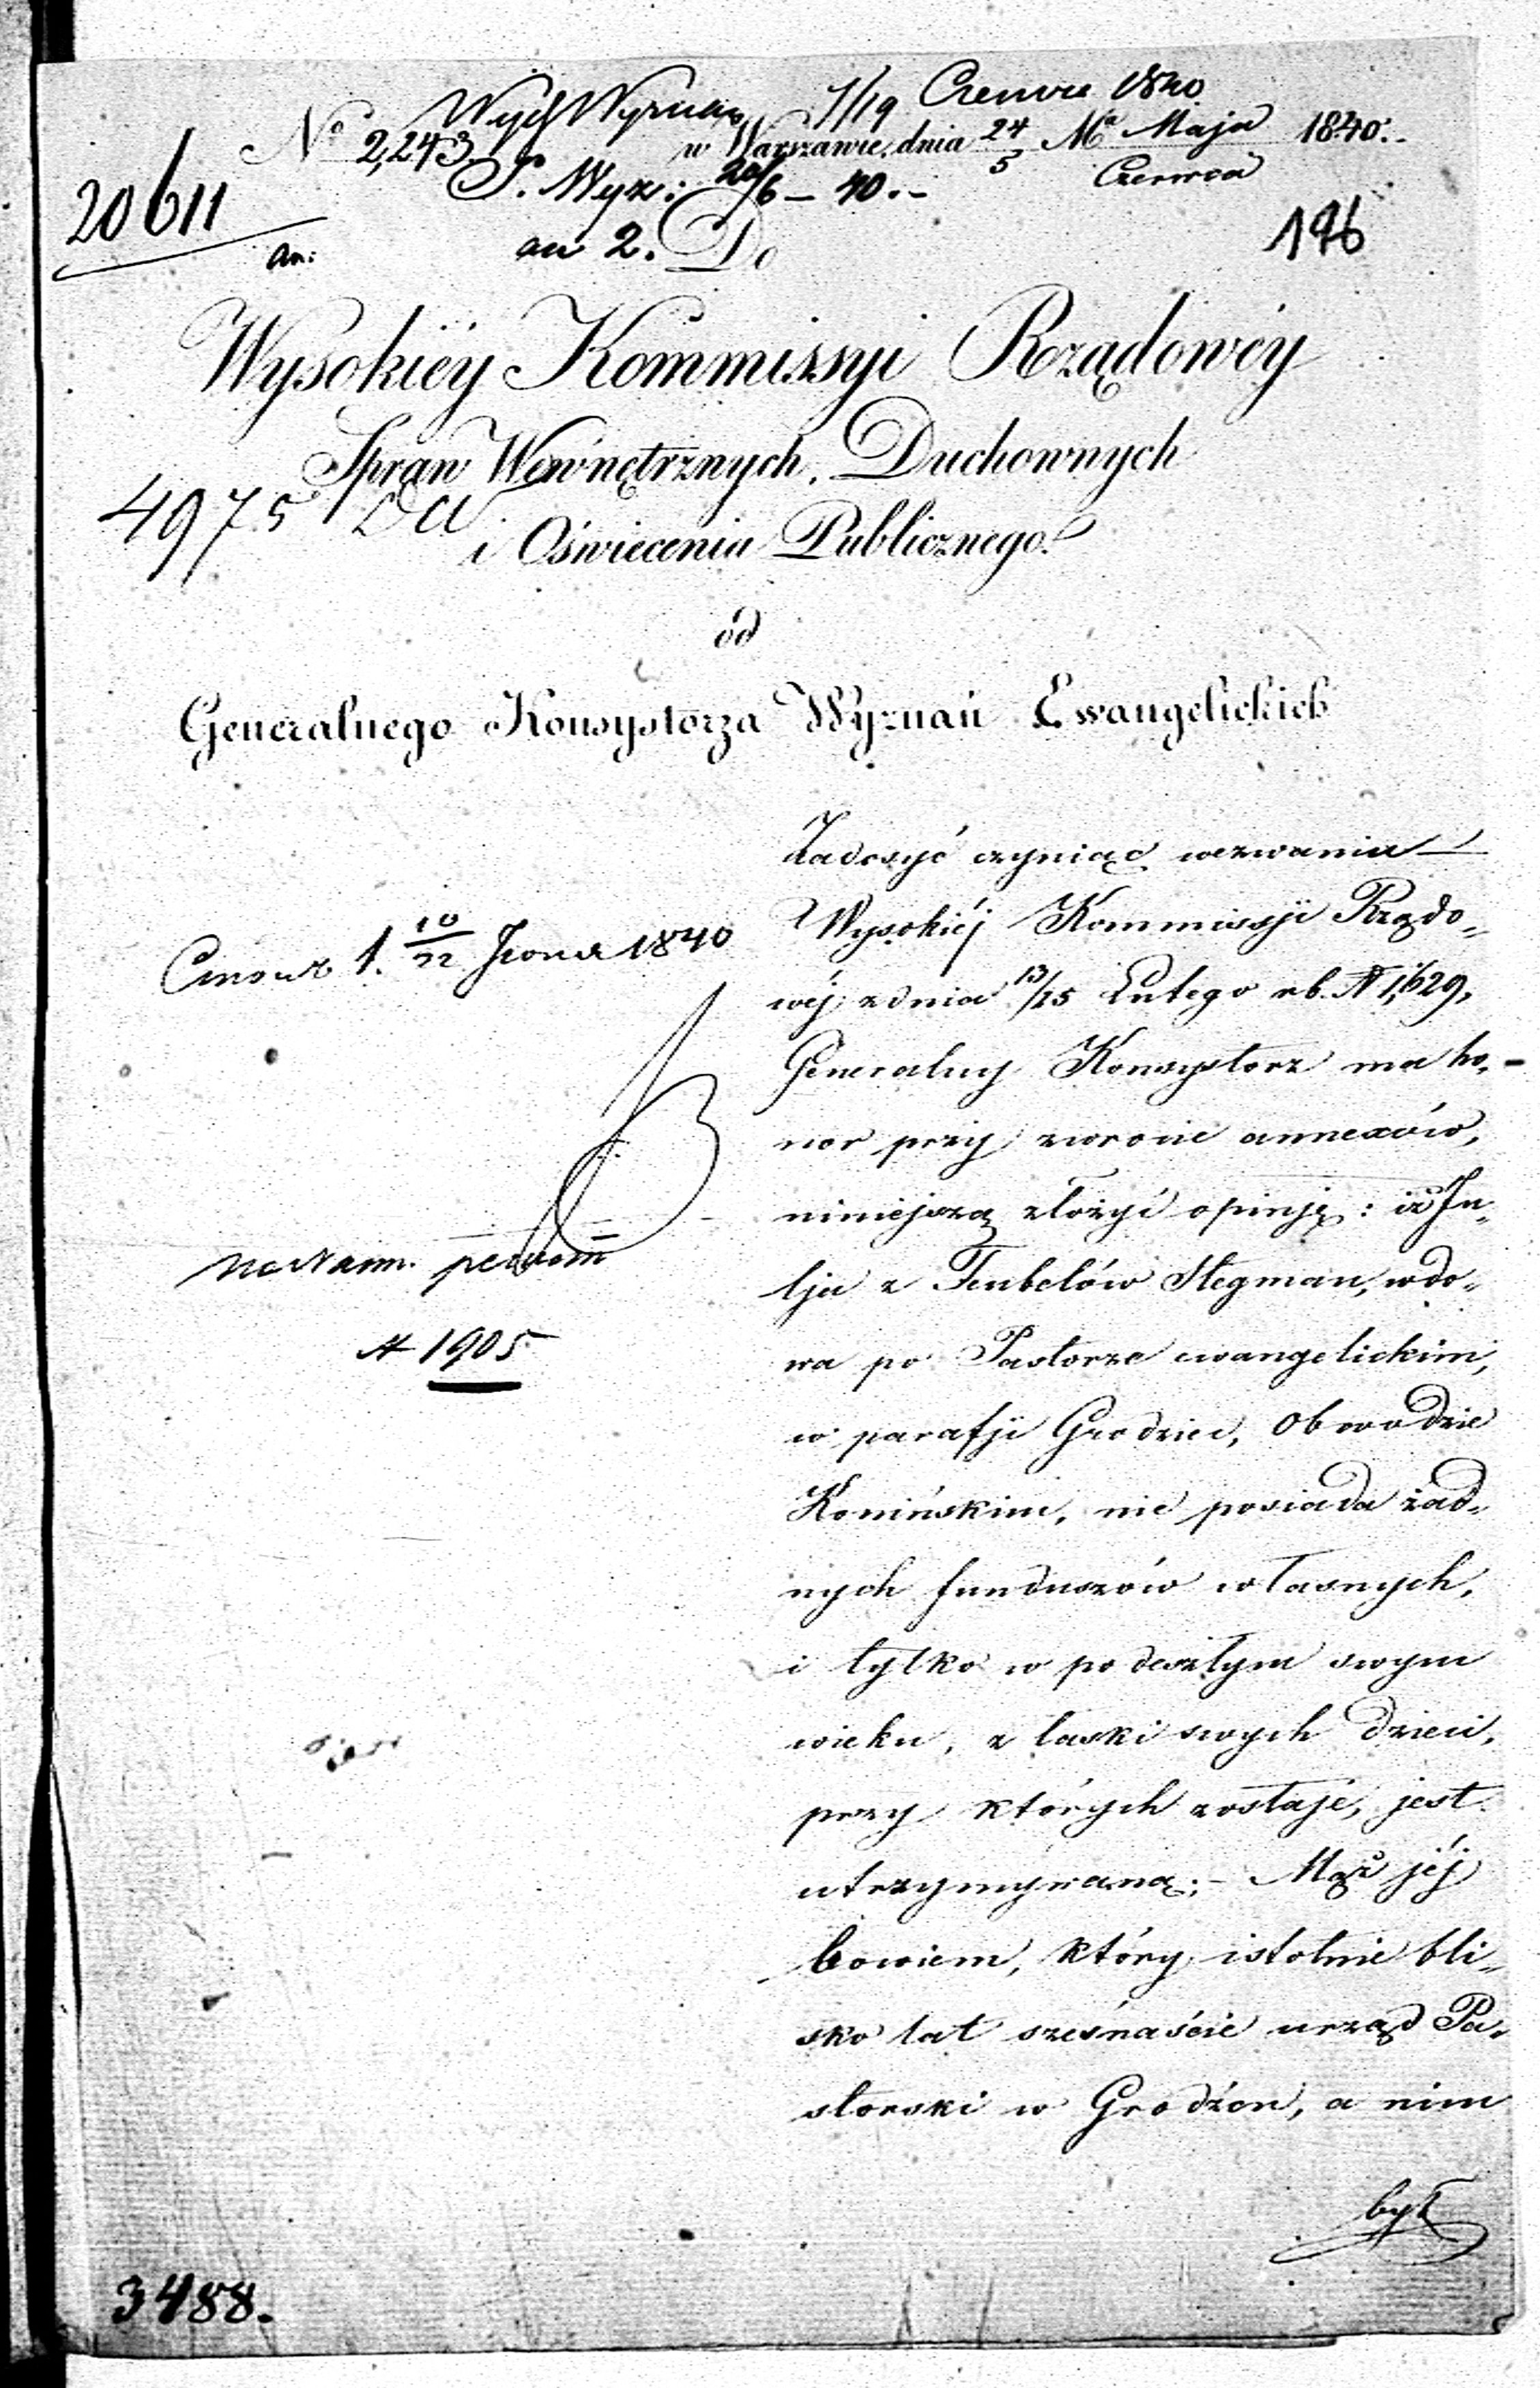 Wydz Wyznań 7/19 Czerwca 1840
No 2,243. w Warszawie, dnia 24/5 Ma Maja/Czerwca 1840.
S. Wyzn: 20/6 – 40.–
20611
an:
an 2.
196
Do
Wysokiéy Kommissyi Rządowéy
Spraw Wewnętrznych, Duchownych
4975
i Oświecenia Publicznego.
od
Generalnego Konsystorza Wyznań Ewangelickich
Zadosyć czyniąc wezwaniu
Wysokiéj Kommissji Rządo„
wéj z dnia 13/25 Lutego r b. N 1,629,
Generalny Konsystorz ma ho„
nor przy zwrocie annexów,
niniejszą złożyć opinję: iż Ju„
lja z Teubelów Stegman, wdo„
wa po Pastorze ewangelickim,
w parafji Grodziec, Obwodzie
Konińskim, nie posiada żad„
nych funduszów własnych,
i tylko w podeszłym swym
wieku, z łaski swych dzieci,
przy których zostaje, jest
utrzymywaną; – Mąż jéj
bowiem, który istotnie bli„
sko lat szesnaście urząd Pa„
storski w Grodźcu, a nim
był
1. 10/22 1840
N 1905
3488.